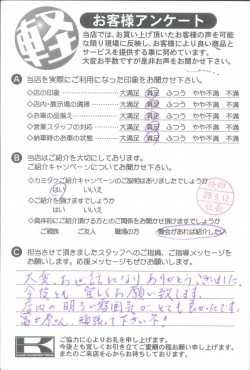 軽
お客様アンケート
当店では、お買い上げ頂いたお客様の声を可能
な限り現場に反映し、お客様により良い商品と
サービスを提供する事に努めています。
大変お手数ですが是非お声をお聞かせ下さい。
A 当店を実際にご利用になった印象をお聞かせ下さい。
◇店の印象 大満足 満足 ふつう やや不満 不満
◇店内・展示場の清掃 大満足 満足 ふつう やや不満 不満
◇お車の品揃え 大満足 満足 ふつう やや不満 不満
◇営業スタッフの対応 大満足 満足 ふつう やや不満 不満
◇納車時のお車の状態 大満足 満足 ふつう やや不満 不満
B 当店はご紹介を大切にしております。
ご紹介キャンペーンについてお聞かせ下さい。
◇カミタケご紹介キャンペーンのご説明はありましたでしょうか
はい いいえ
◇ご紹介を頂けますでしょうか
はい いいえ
◇具体的にご紹介頂ける方とのご関係をお聞かせ頂けますでしょうか
ご親族 ご友人 職場の方 機会があれば紹介したい
25.6.12
C 担当させて頂きましたスタッフへのご指摘、ご指導メッセージを
お願いします。応援メッセージもぜひお願いします。
大変お世話になりありがとうございました。
今後とも宜しくお願い致します。
店内の明るい雰囲気がとても良かったです。
頑張って下さい
K
ご協力に心よりお礼を申し上げます。
今後とも宜しくお引き立てご愛顧の程お願い申し上げます。
またのご来店を心からお待ちしております。